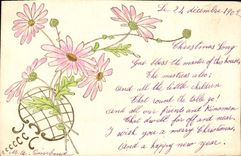 Le 24 décembre 190
Christmas Song
God bless the master of this house,
The mistress also;
And all the little children
That round the table go!
And all our friends and Kinsmen
That dwell far off and near.
I wish you a merry Christmas,
And a happy new year.